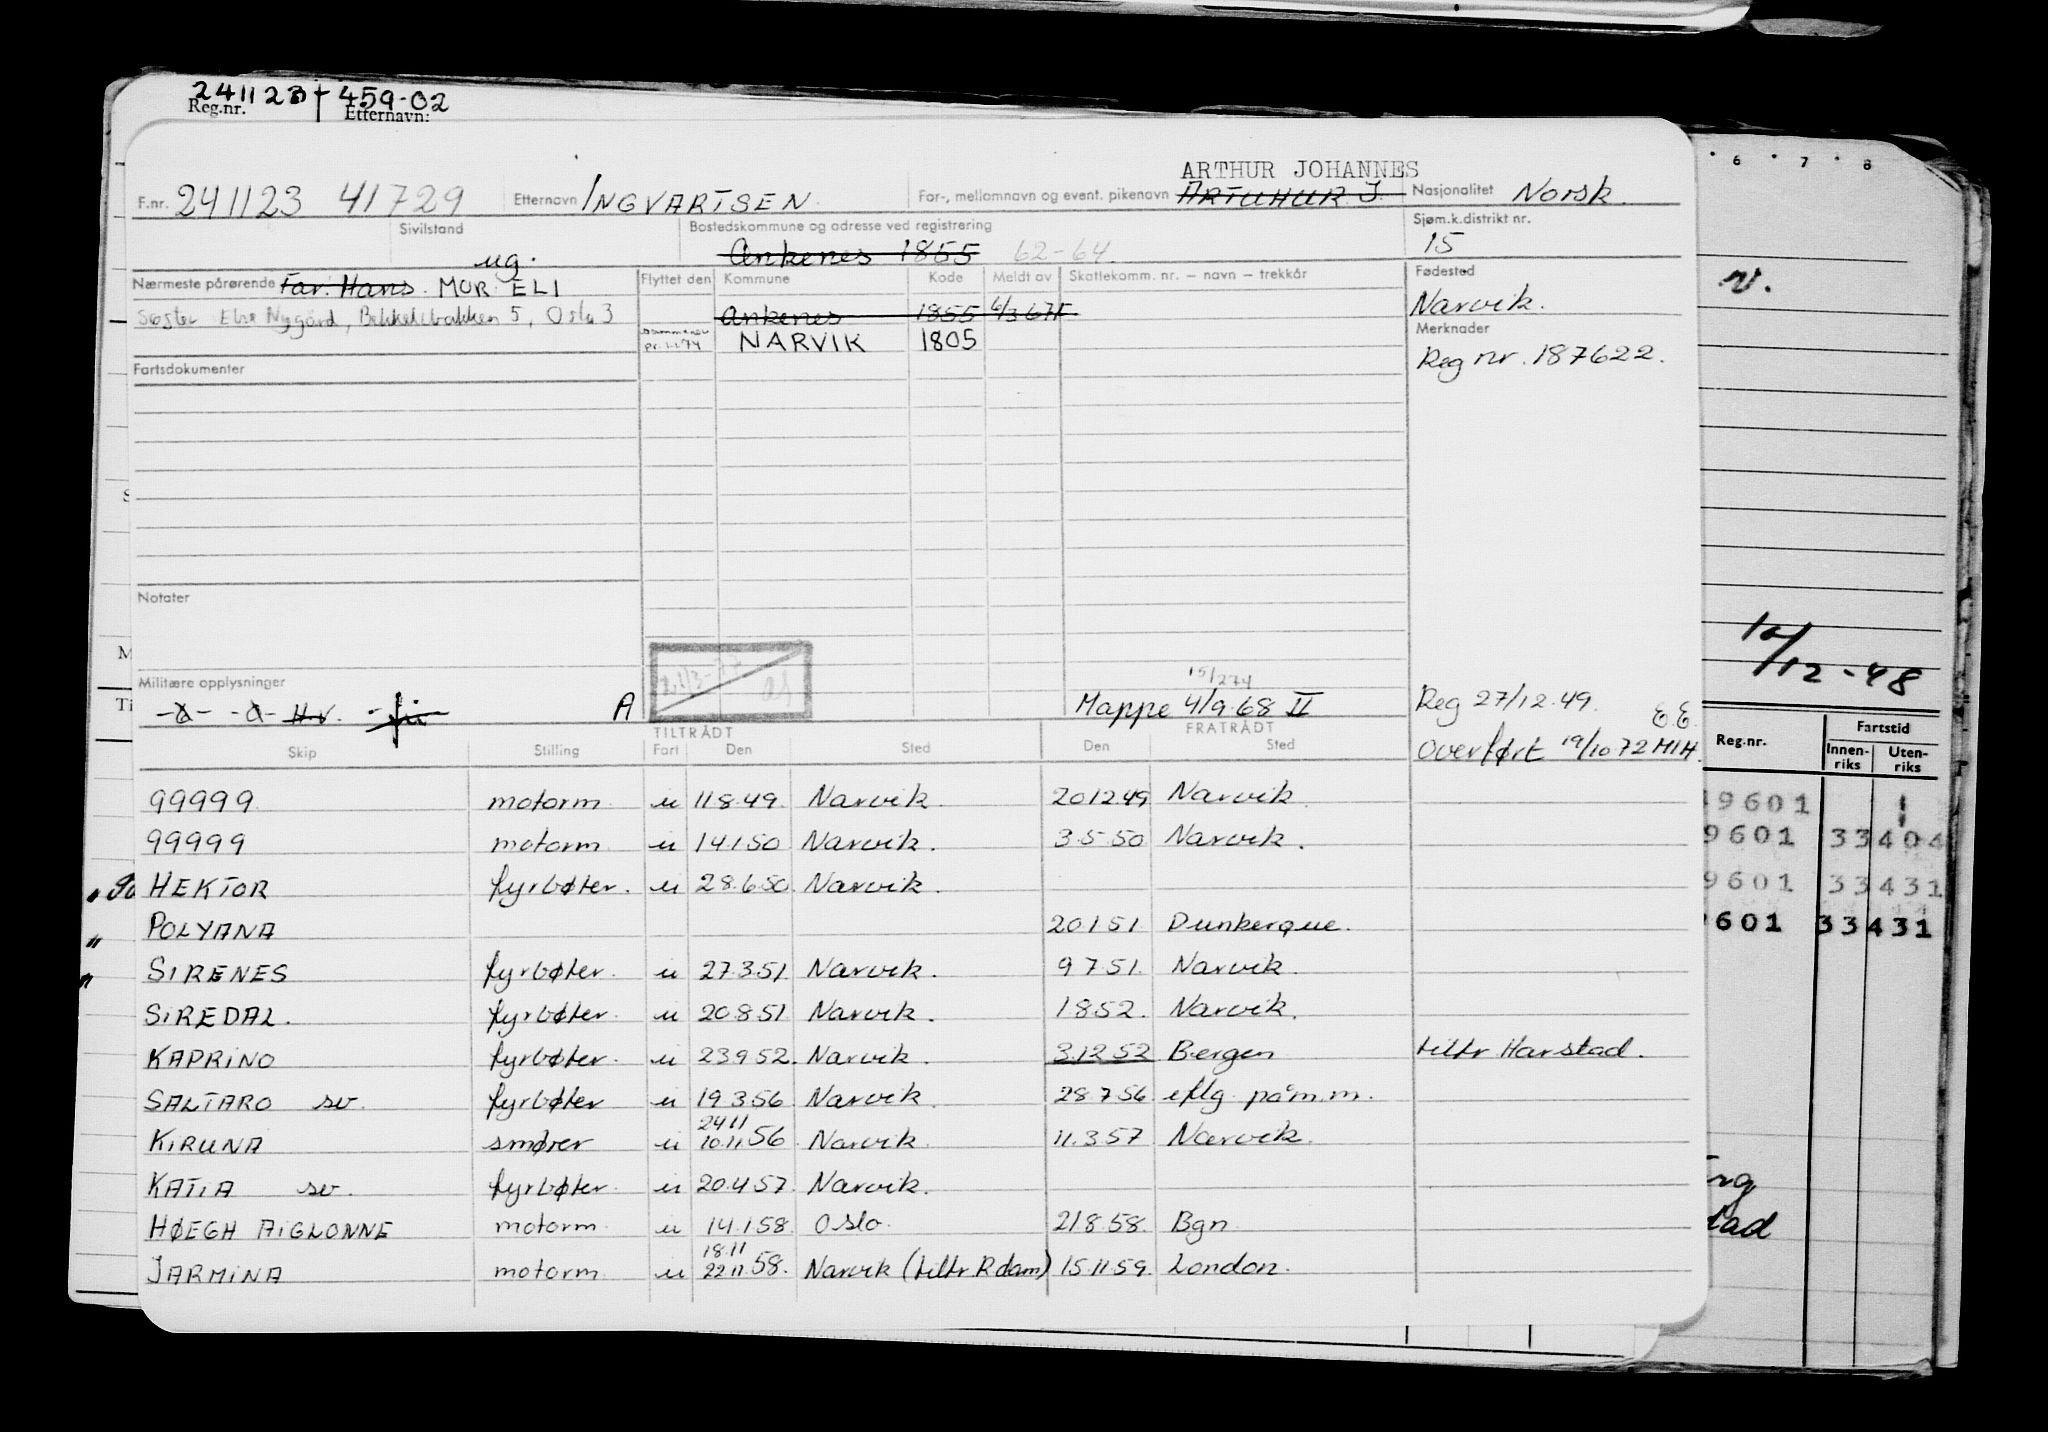 241123 + 459-02
Reg.nr. Etternavn:
ARTHUR JOHANNES
F.nr. 241123 41729 Etternavn INGVARTSEN For-, mellomnavn og event. pikenavn ARTUHUR J. Nasjonalitet Norsk.
Sivilstand ug. Bostedskommune og adresse ved registrering Ankenes 1855 62-64. Sjøm.k.distrikt nr. 15
Nærmeste pårørende Far: Hans. MOR: ELI Flyttet den Kommune Kode Meldt av Skattekomm. nr. – navn – trekkår Fødested
Søster Else Nygård, Bekkelibakken 5, Oslo 3 Ankenes 1855 6/3 67F Narvik.
pr. 1-1-74 NARVIK 1805 Merknader
Fartsdokumenter Reg nr. 187622.
Notater
Militære opplysninger
15/274
A Mappe 4/9-68 II Reg 27/12-49.
E.E.
TILTRÅDT FRATRÅDT
Skip Stilling Fart Den Sted Den Sted Overført 19/10-72 MIH.
99999 motorm u 11.8.49. Narvik. 20.12.49 Narvik.
99999 motorm u 14.1.50 Narvik. 3.5.50 Narvik.
HEKTOR fyrbøter. u 28.6.50. Narvik.
POLYANA 20.1.51 Dunkerque.
SIRENES fyrbøter. u 27.3.51. Narvik. 9.7.51. Narvik.
SIREDAL. fyrbøter. u 20.8.51 Narvik. 1.8.52. Narvik.
KAPRINO fyrbøter. u 23.9.52. Narvik. 3.12.52 Bergen tiltr. Harstad.
SALTARO sv. fyrbøter u 19.3.56 Narvik. 28.7.56 eflg. påm.m.
24.11
KIRUNA smører u 10.11.56 Narvik. 11.3.57 Narvik.
KATIA sv. fyrbøter. u 20.4.57. Narvik.
HØEGH AIGLONNE motorm. u 14.1.58. Oslo. 21.8.58. Bgn.
18.11
JARMINA motorm. u 22.11.58. Narvik (tiltr R.dam) 15.11.59. London.
6 7 8
v.
12/12-48
Reg.nr. Fartstid
Innen-riks Uten-riks
9601
9601 33 404
9601 33 431
601 33 431